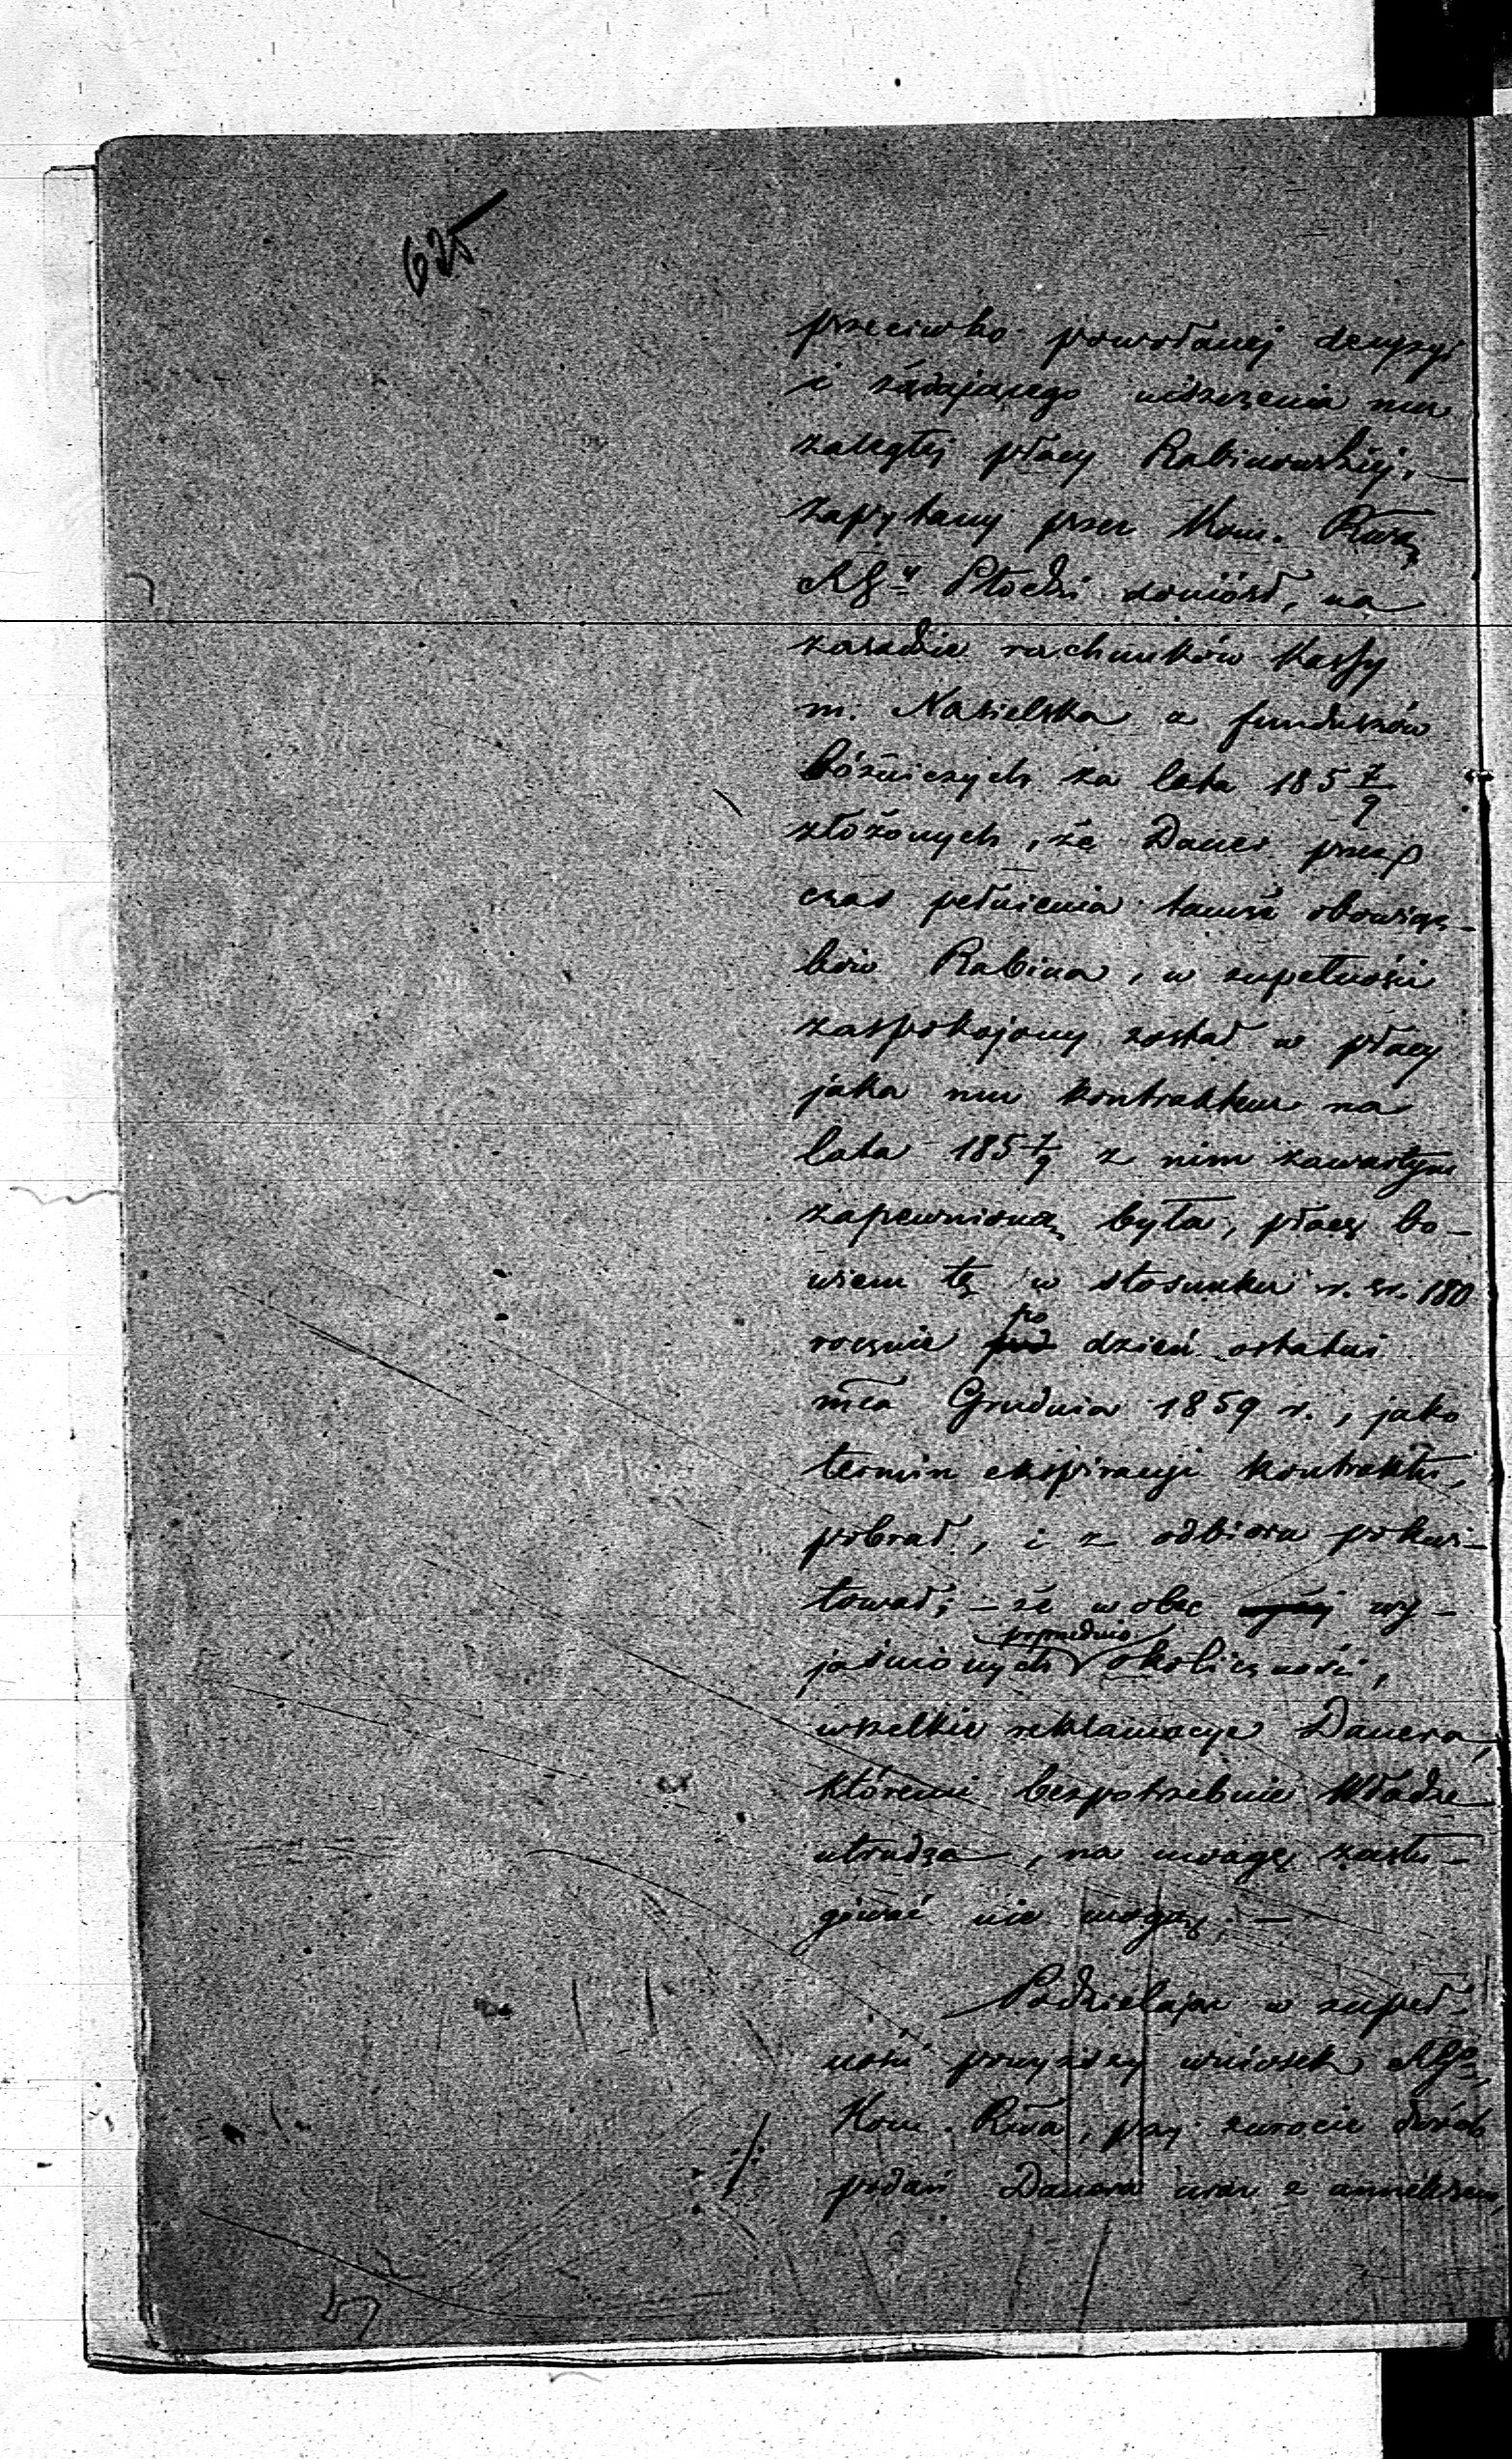 625
przeciwko powołanej decyzyi
i żądającego uiszczenia mu
zaległej płacy Rabinowskiej, —
zapytany przez Kom. Rwą
RGu Płocki doniósł, na
zasadzie rachunków Kassy
m. Nasielska z funduszów
bóżniczych za lata 185 7/9
złożonych, że Dauer przez
czas pełnienia tamże obowiąz-
ków Rabina, w zupełności
zaspokojony został w płacy
jaka mu kontraktem na
lata 185 7/9 z nim zawartym
zapewnioną była, płacę bo-
wiem tę w stosunku r. sr. 180
rocznie po dzień ostatni
mca Grudnia 1859 r., jako
termin ekspiracyi kontraktu,
pobrał, i z odbioru pokwi-
tował; — że wobec wy-
jaśnionych poprzednio okoliczności,
wszelkie reklamacye Dauera,
któremi bezpotrzebnie Władze
utrudza, na uwagę zasłu-
giwać nie mogą; —
Podzielając w zupeł-
ności powyższy wniosek RGo,
Kom. Rwa, przy zwrocie dwóch
podań Dauera wraz z annexem,